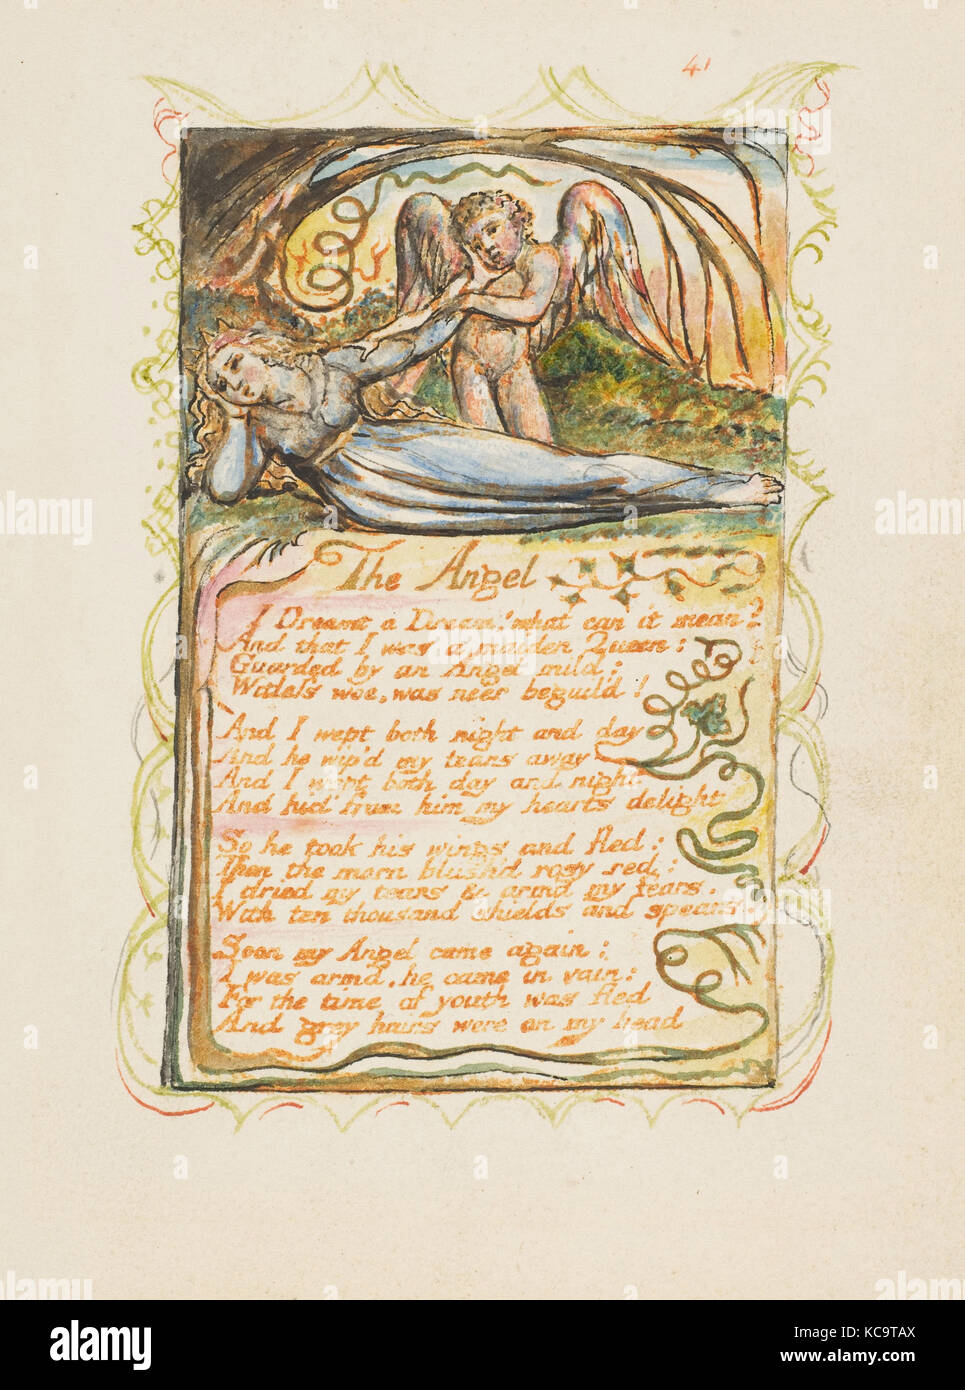 41
The Angel
I Dreamt a Dream! what can it mean?
And that I was a maiden Queen:
Guarded by an Angel mild;
Witless woe, was neer beguil'd!
And I wept both night and day
And he wip'd my tears away
And I wept both day and night
And hid from him my hearts delight
So he took his wings and fled:
Then the morn blush'd rosy red:
I dried my tears & armd my fears.
With ten thousand shields and spears.
Soon my Angel came again:
I was arm'd, he came in vain:
For the time of youth was fled
And grey hairs were on my head
alamy
Image ID: KC9TAX
www.alamy.com